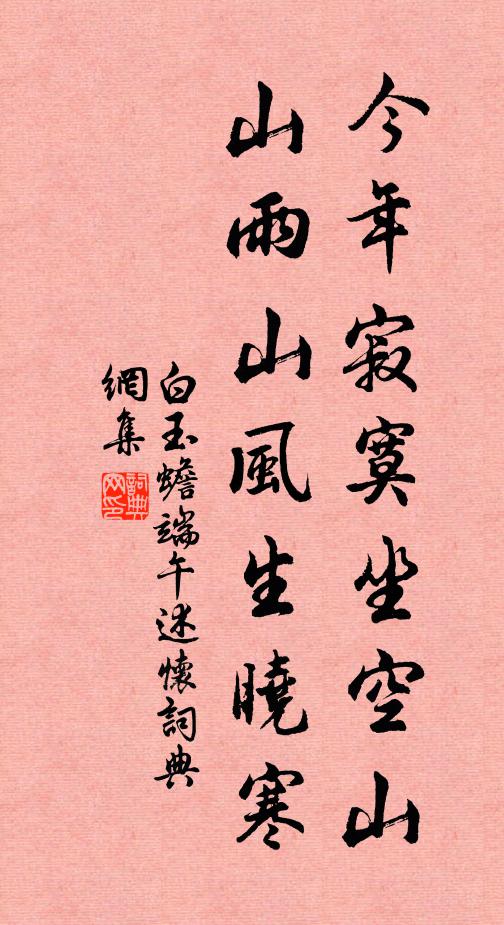 今年寂寞坐空山
山雨山風生曉寒
白玉蟾端午述懷詞典
網集
詞典
网印